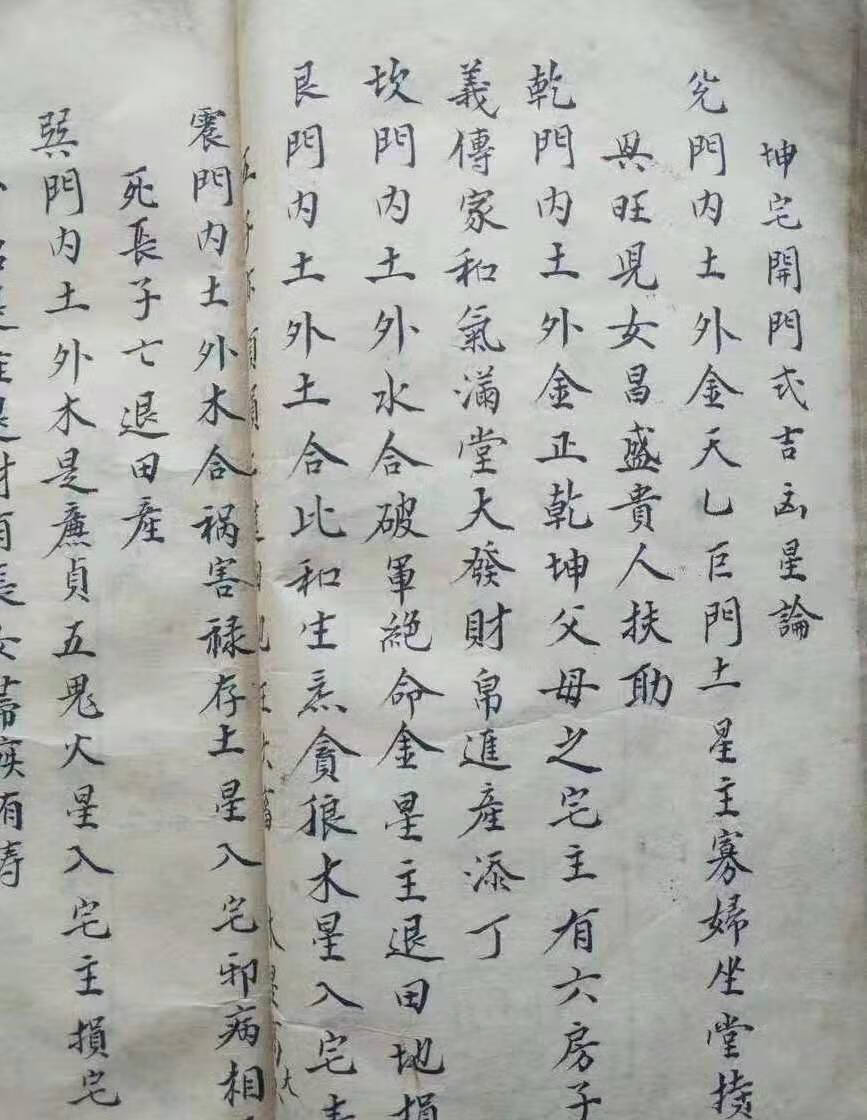 坤宅開門式吉凶星論
兑門内土外金天乚巨門土星主寡婦坐堂持
興旺児女昌盛貴人扶助
乾門内土外金正乾坤父母之宅主有六房子
義傳家和氣滿堂大發財帛進產添丁
坎門内土外水合破軍絕命金星主退田地損
艮門内土外土合比和生炁貪狼木星入宅
震門内土外木合禍害禄存土星入宅邪病相
死長子亡退田產
巽門内土外木是廉貞五鬼火星入宅主損宅
財有長女
有